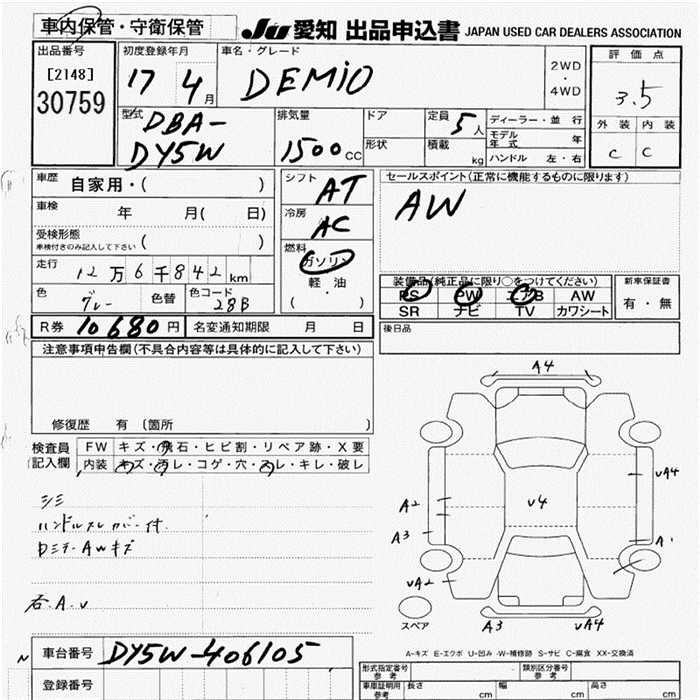 車内保管・守衛保管
JU 愛知 出品申込書 JAPAN USED CAR DEALERS ASSOCIATION
出品番号
[2148]
30759
初度登録年月
17 4月
車名・グレード
DEMIO
2WD
・
4WD
評価点
3.5
外装 内装
C C
型式
DBA-
DY5W
排気量
1500cc
ドア
形状
定員 5人
積載 kg
ディーラー・並行
モデル年式 年
ハンドル 左・右
車歴 自家用・( )
車検 年 月( 日)
受検形態
車検付きのみ記入して下さい ( )
走行 12万6千842km
色 グレー 色替
色コード 28B
シフト AT
冷房 AC
燃料
ガソリン
軽油
( ・ )
セールスポイント(正常に機能するものに限ります)
AW
装備品(純正品に限り○をつけてください)
PS PW エアB AW
SR ナビ TV カワシート
新車保証書
有・無
後日品
R券 10680円 名変通知期限 月 日
注意事項申告欄(不具合内容等は具体的に記入して下さい)
修復歴 有 〔箇所 〕
検査員記入欄
FW キズ・飛石・ヒビ割・リペア跡・X要
内装 キズ・汚レ・コゲ・穴・スレ・キレ・破レ
シミ
ハンドルスレ カバー付
DミラーAWキズ
A4
A2
A3
v4
vA4
A1
vA2
スペア
A3
vA4
A-キズ E-エクボ U-凹み W-補修跡 S-サビ C-腐食 XX-交換済
車台番号 DY5W-406105
登録番号
形式指定番号
参考
類別区分番号
参考
車庫証明用
参考
長さ cm 幅 cm 高さ cm